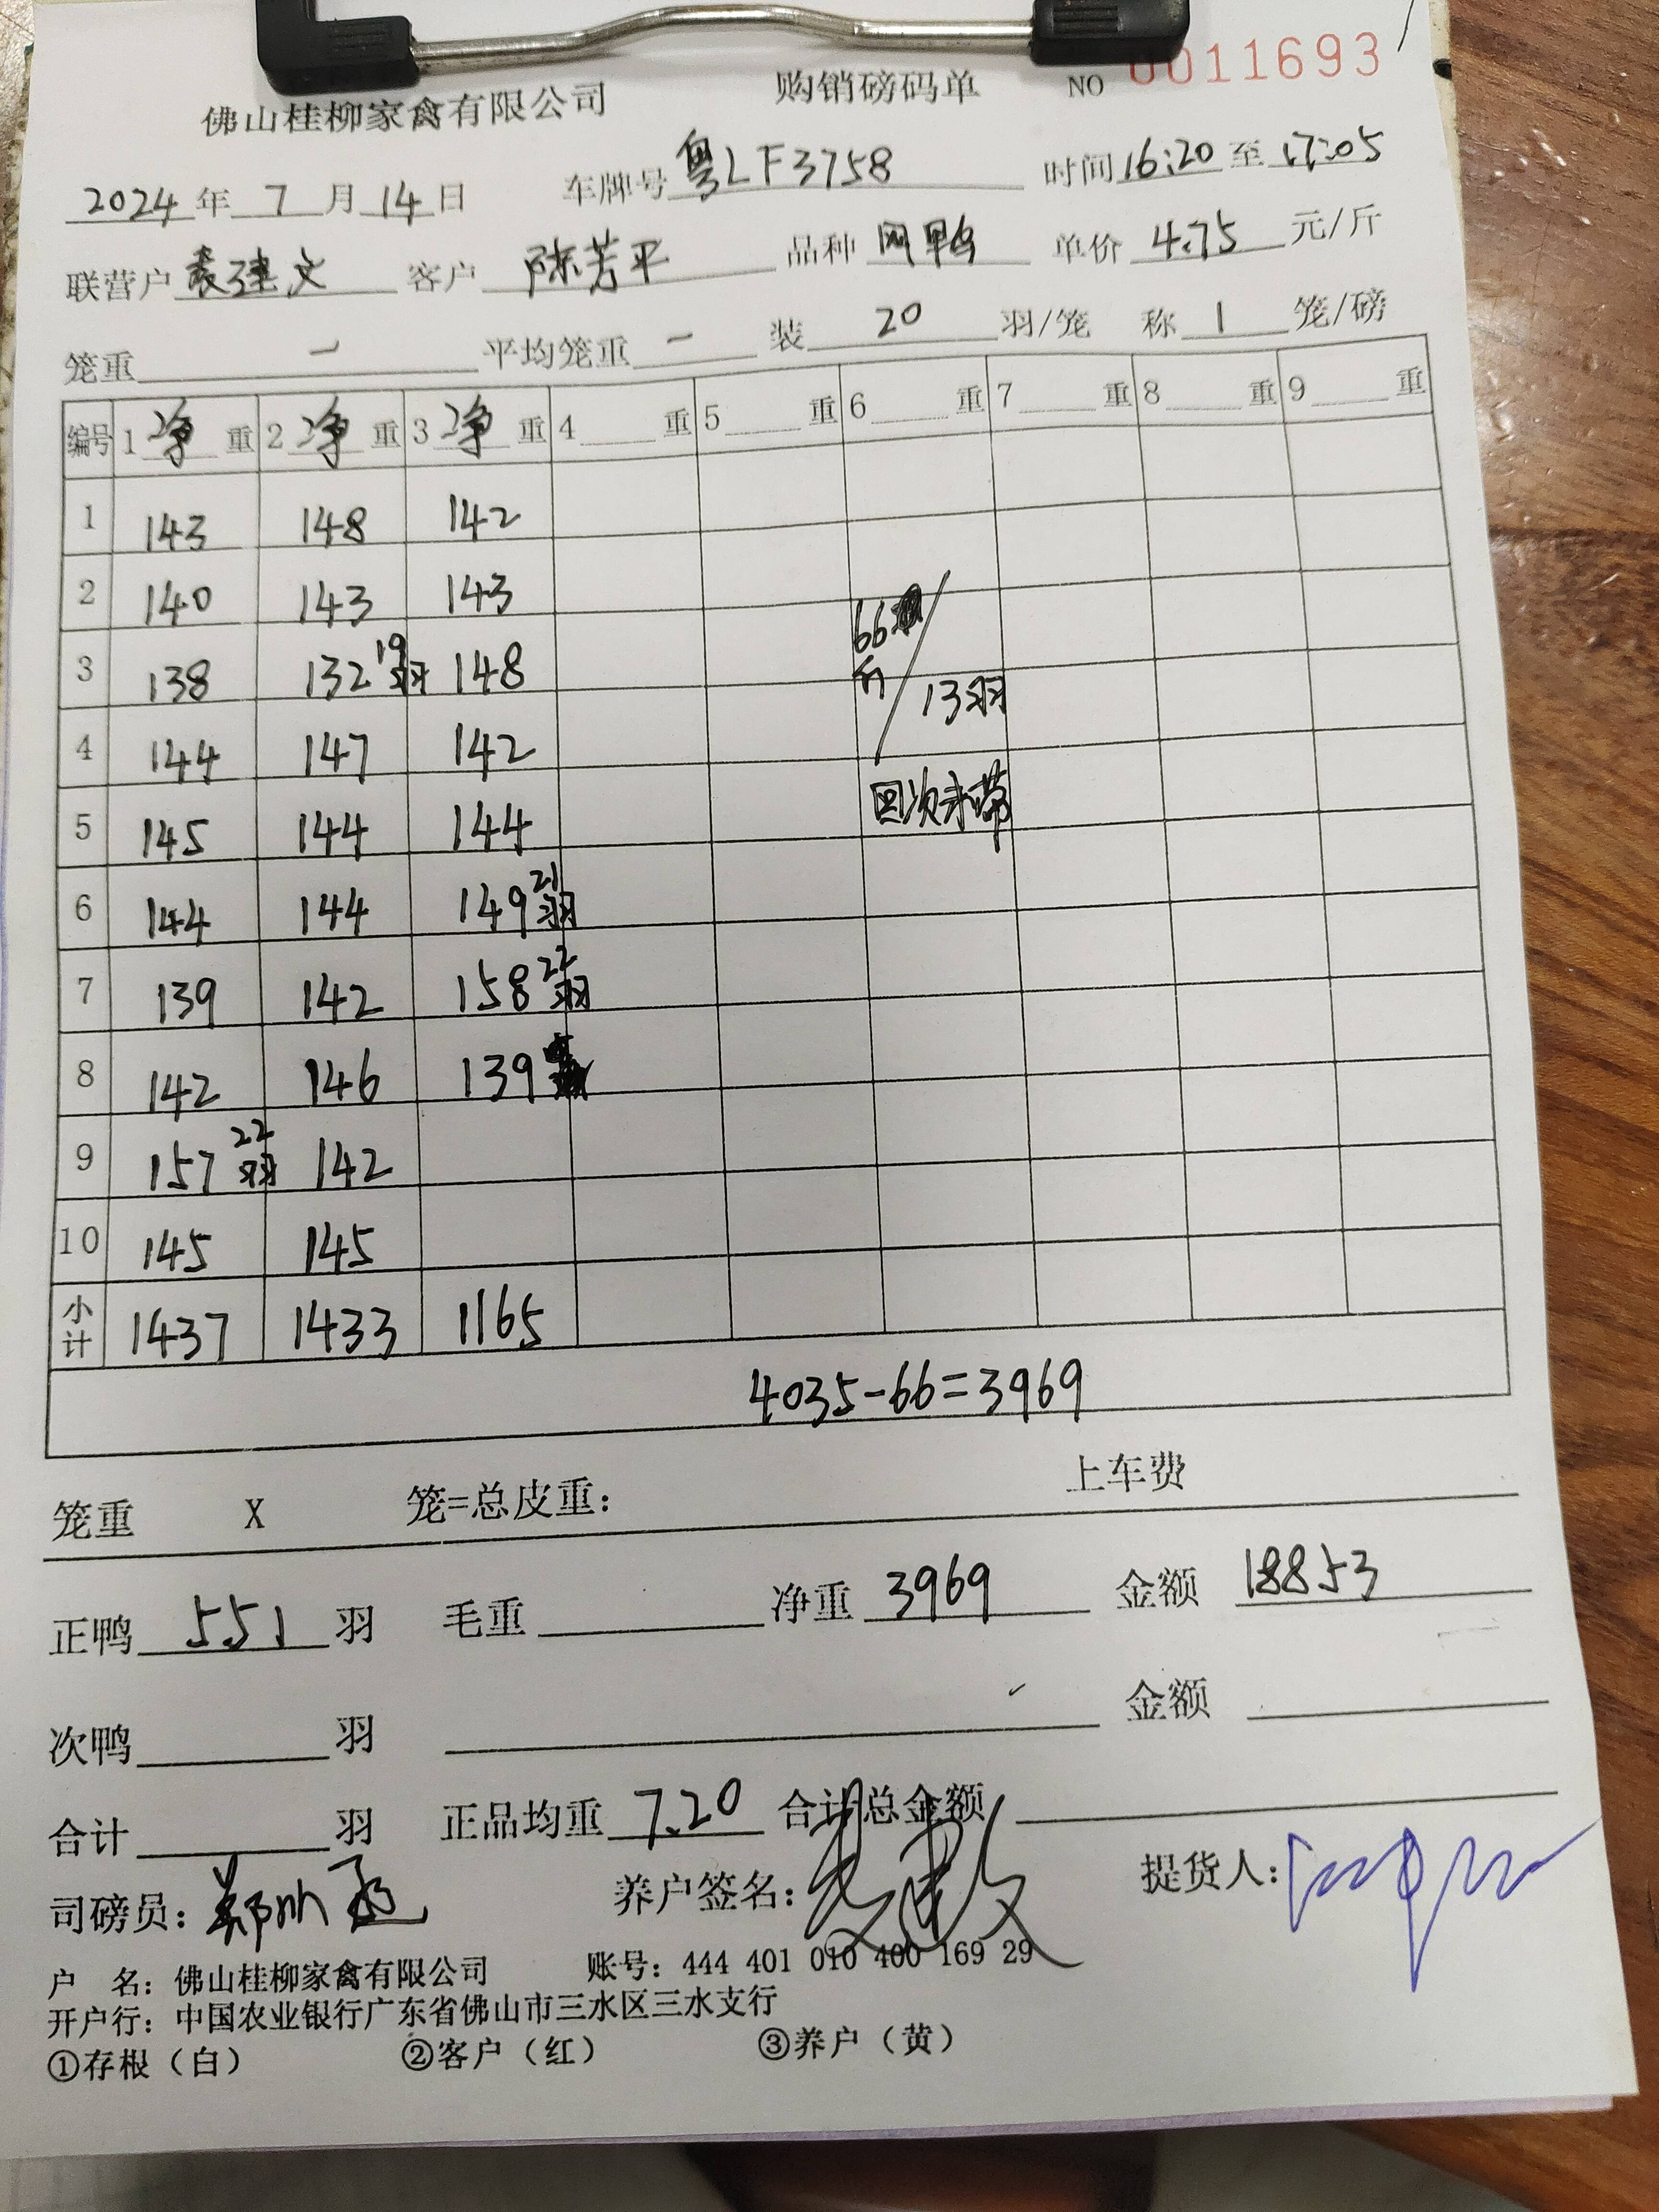 佛山桂柳家禽有限公司 购销磅码单 NO 0011693
2024年7月14日 车牌号 粤LF3758 时间 16:20 至 17:05
联营户 袁建文 客户 陈芳平 品种 网鸭 单价 4.75 元/斤
笼重 一 平均笼重 一 装 20 羽/笼 称 1 笼/磅
编号 1 净 重 2 净 重 3 净 重 4 重 5 重 6 重 7 重 8 重 9 重
1 143 148 142
2 140 143 143 66斤/13羽
3 138 132 19羽 148
4 144 147 142
5 145 144 144 回次未带
6 144 144 149 21羽
7 139 142 158 22羽
8 142 146 139
9 157 22羽 142
10 145 145
小计 1437 1433 1165
4035-66=3969
笼重 X 笼=总皮重： 上车费
正鸭 551 羽 毛重 净重 3969 金额 18853
次鸭 羽 金额
合计 羽 正品均重 7.20 合计总金额
司磅员： 养户签名： 提货人：
户 名：佛山桂柳家禽有限公司 账号：444 401 010 400 169 29
开户行：中国农业银行广东省佛山市三水区三水支行
①存根（白） ②客户（红） ③养户（黄）